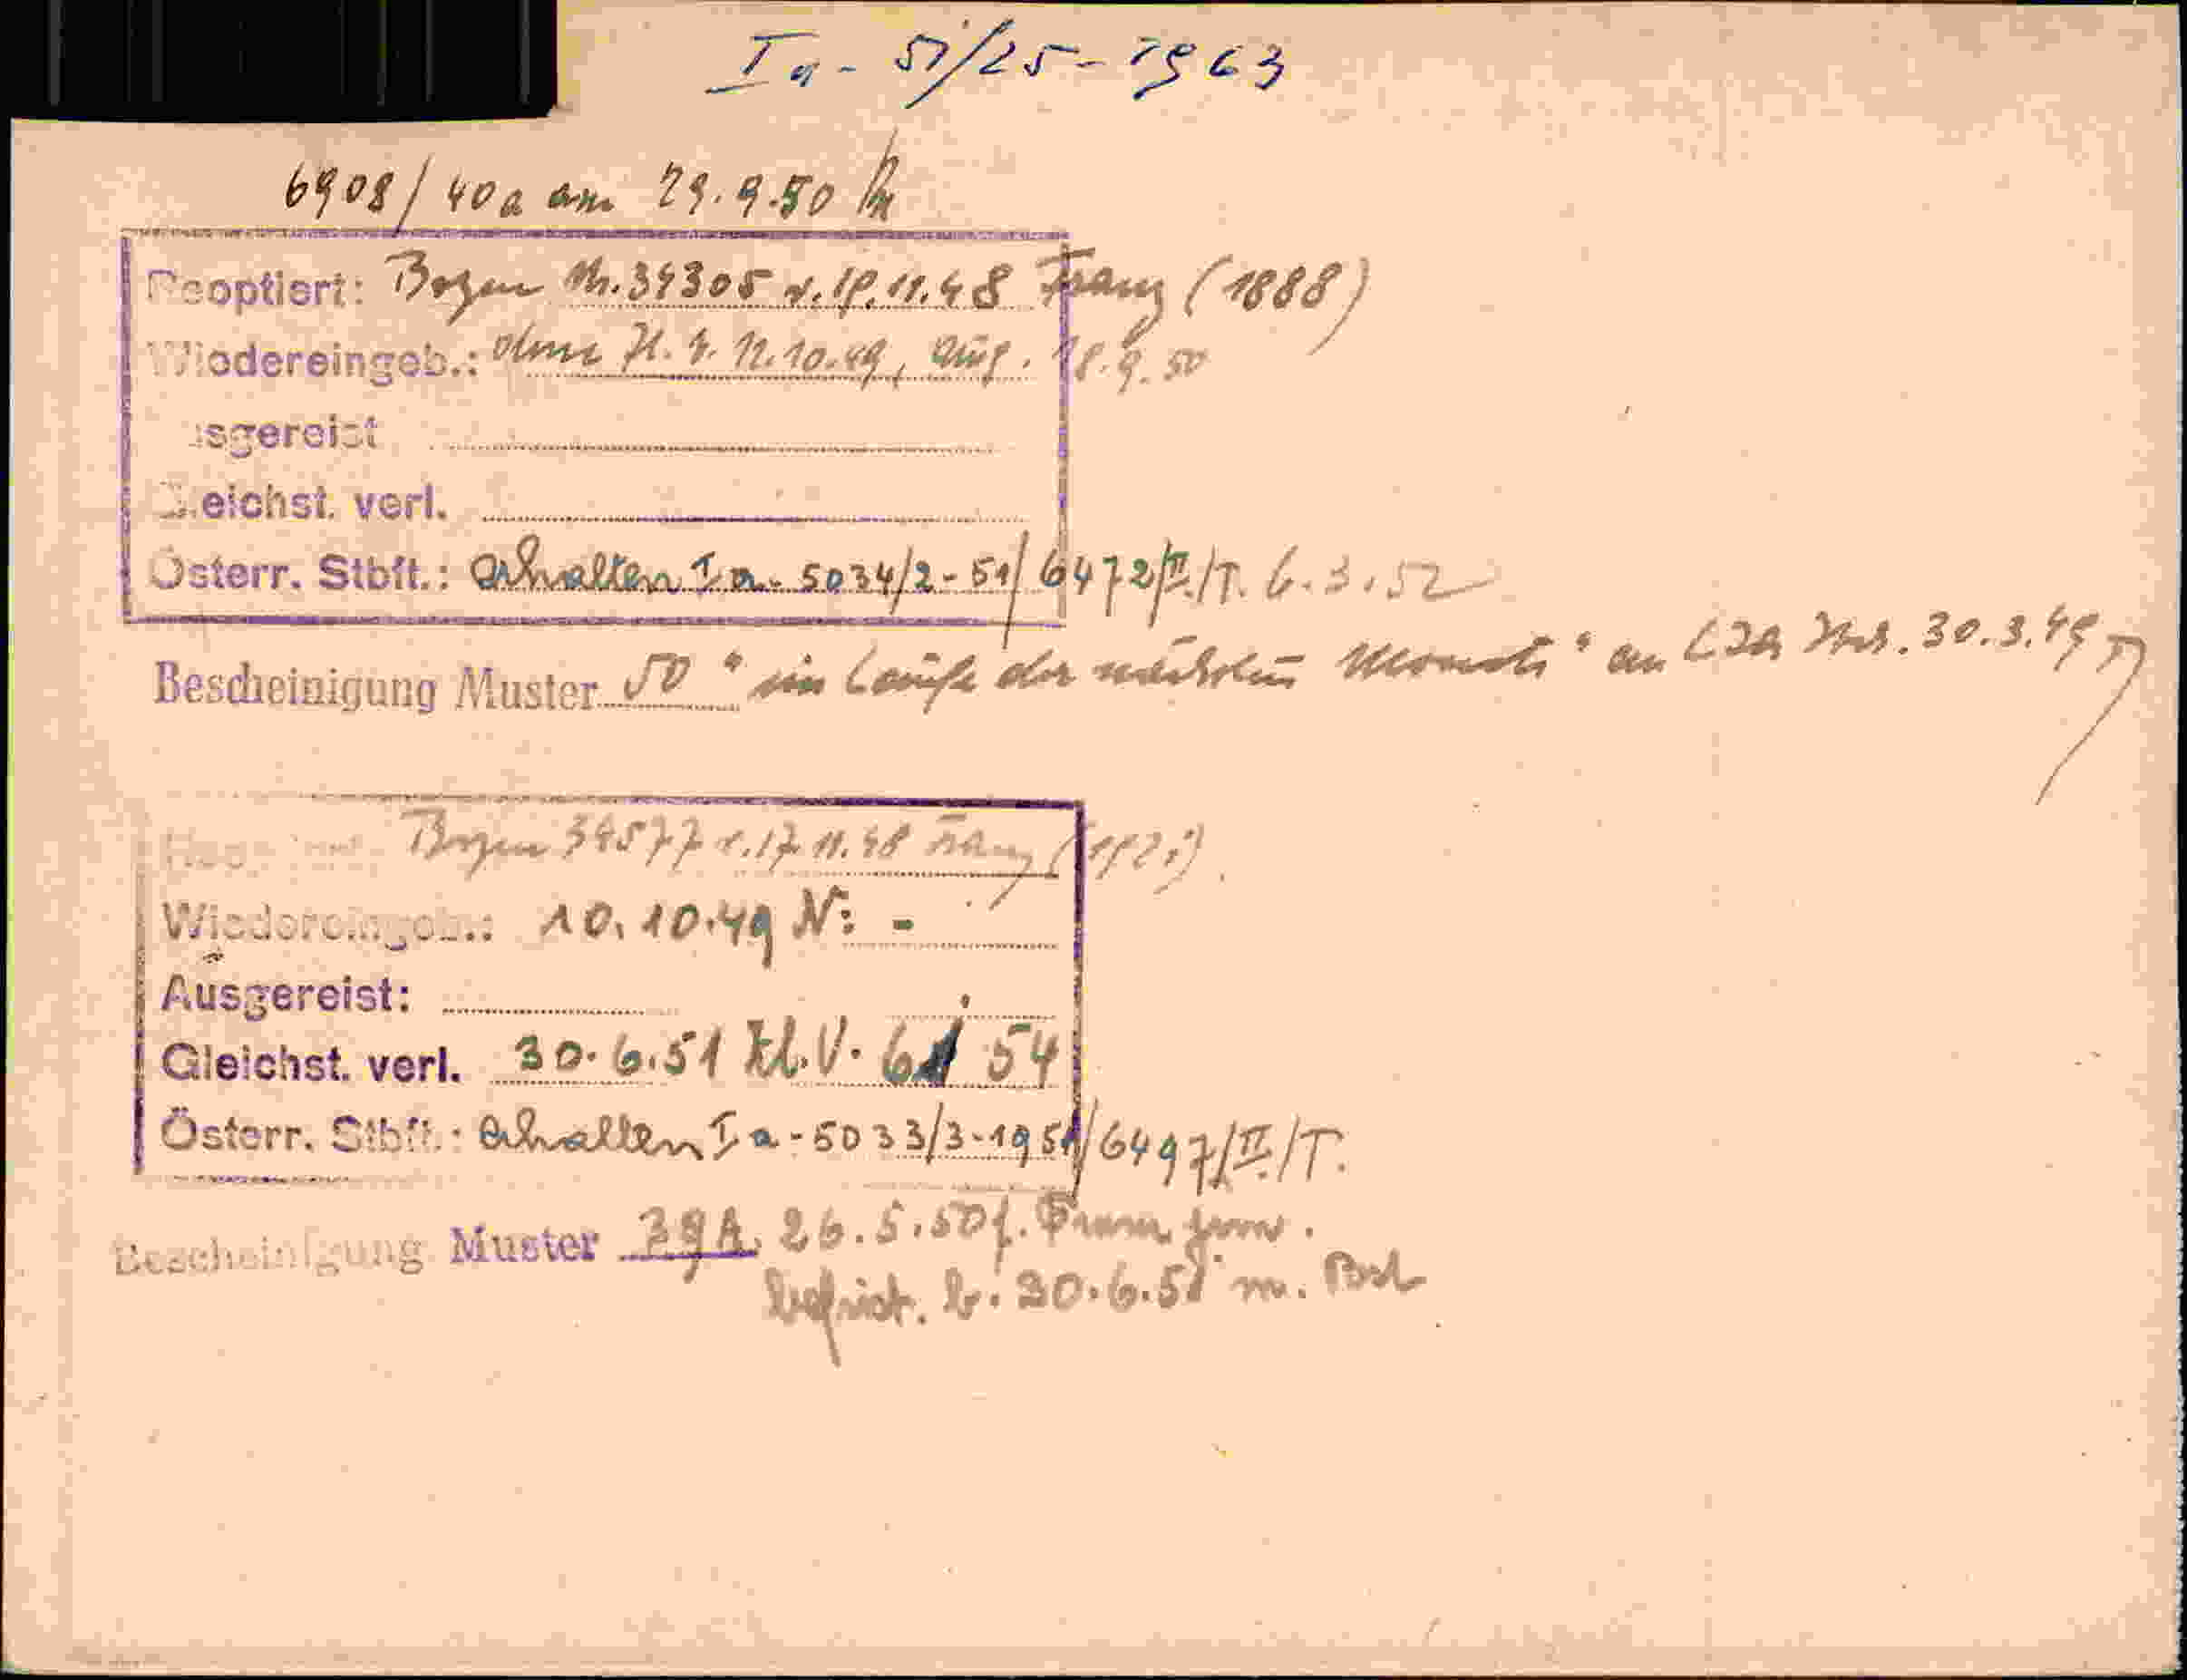 Ia - 51/25 - 1963
6908/40a am 29.9.50
Reoptiert: Bozen Nr. 34305 v. 18.11.48 Franz (1888)
Wiedereingeb.: ohne N. v. 12.10.49, ausg. 18.9.50
usgereist
Gleichst. verl.
Österr. Stbft.: erhalten Ia - 5034/2 - 51/6472/II./T. 6.3.52
Bescheinigung Muster 50 "im Laufe der nächsten Monate" an 30.3.49
Bozen 34577 v. 17.11.48 Franz
Wiedereingeb.: 10.10.49 N: -
Ausgereist:
Gleichst. verl. 30.6.51 Kl. V. 61 54
Österr. Stbft.: erhalten Ia - 5033/3 - 1951/6497/II./T.
Bescheinigung Muster 39A. 26.5.50 f. Franz jun.
befrist. b. 30.6.51 m.